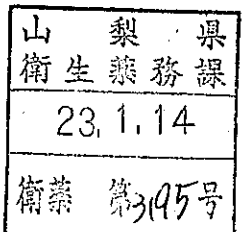 山梨県
衛生薬務課
23.1.14
衛薬 第3195号